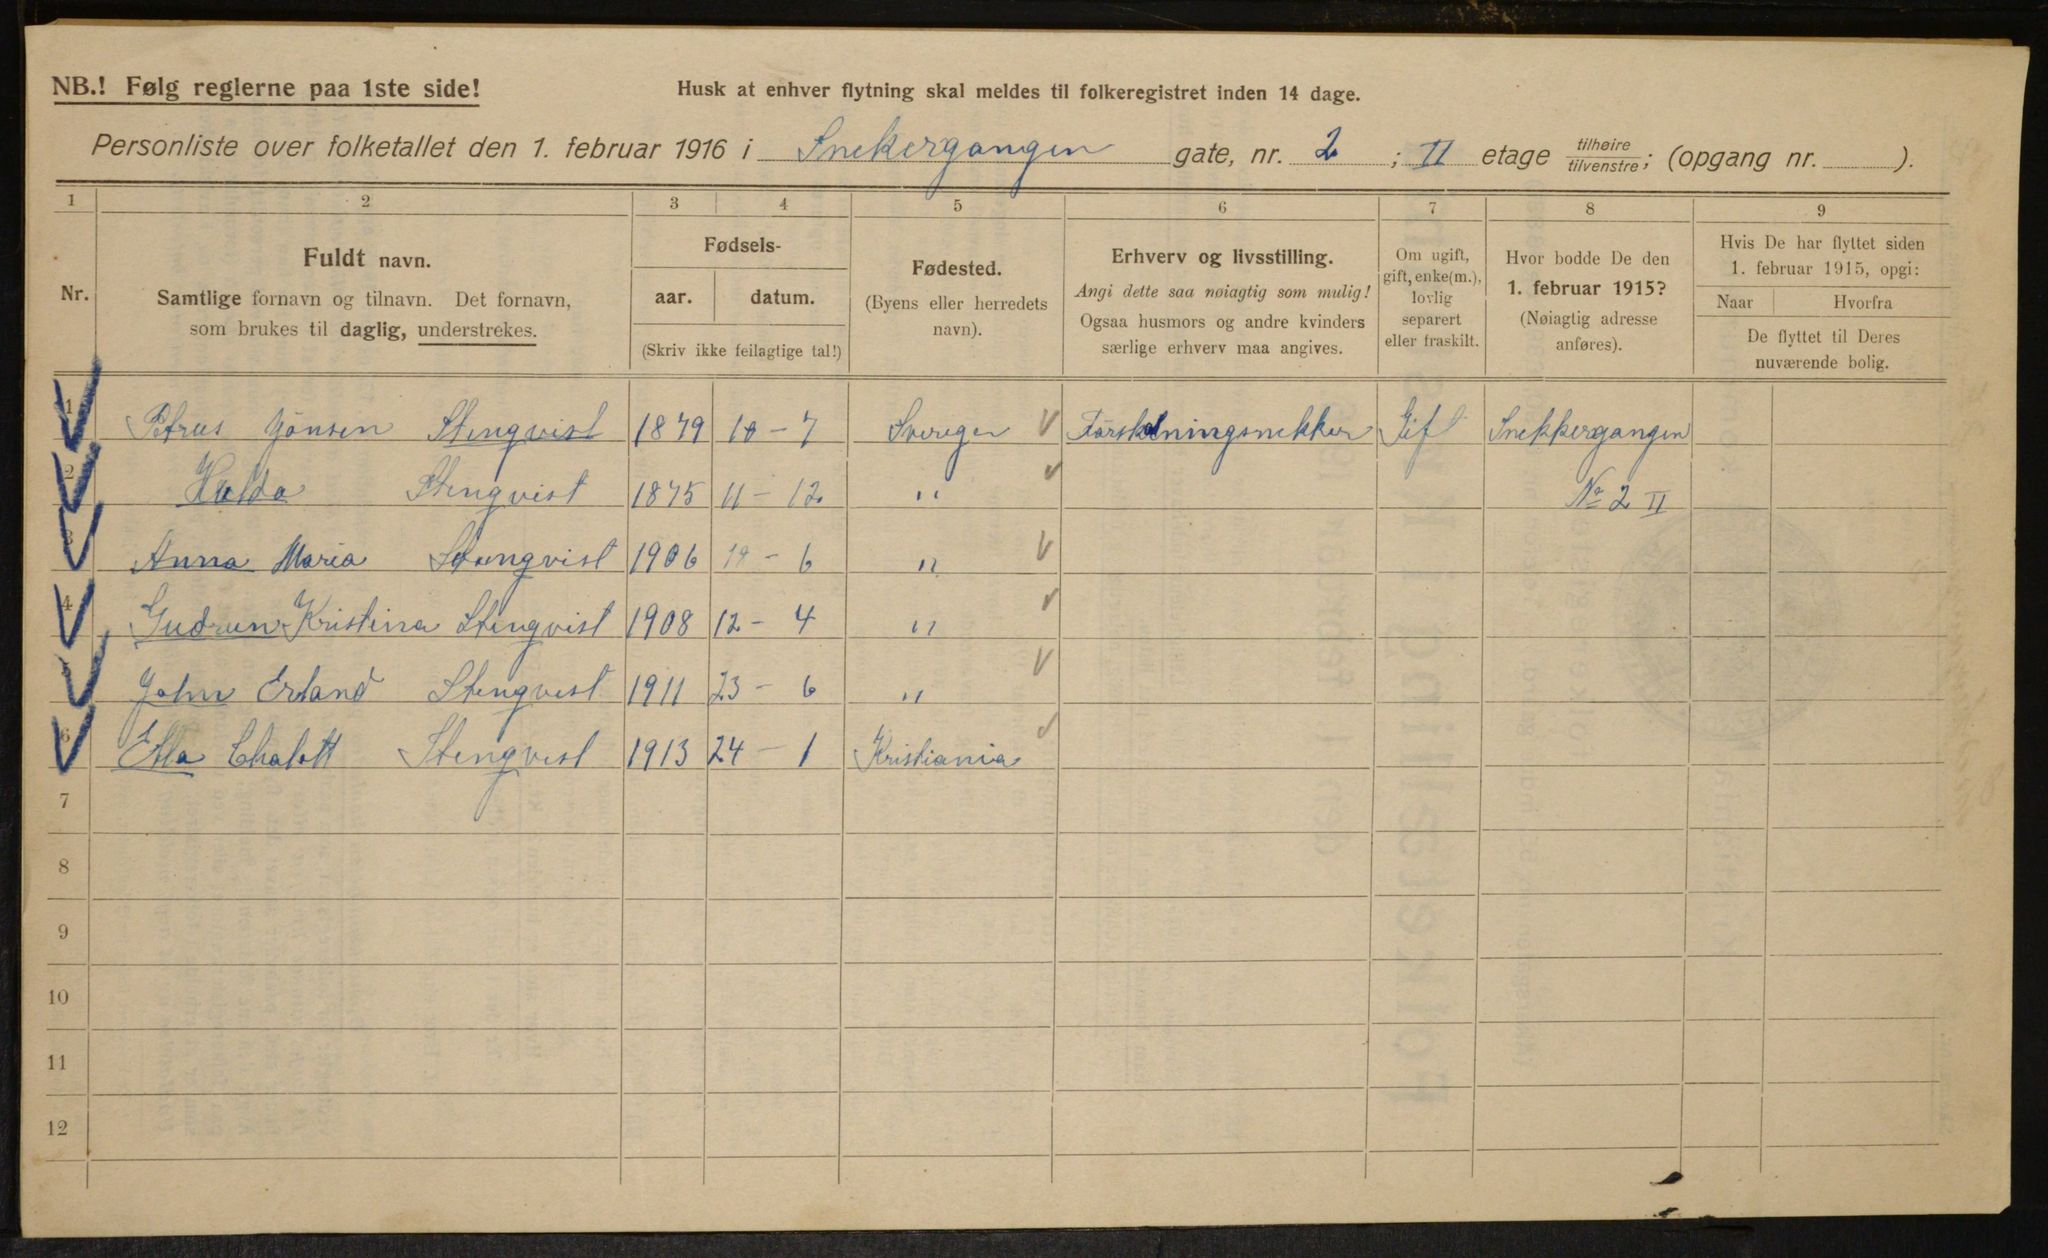 NB.! Følg reglerne paa 1ste side!
Husk at enhver flytning skal meldes til folkeregistret inden 14 dage.
Personliste over folketallet den 1. februar 1916 i Snekergangen gate, nr. 2 ; II etage tilhøire tilvenstre; (opgang nr. ).
1 2 3 4 5 6 7 8 9
Nr.
Fuldt navn.
Samtlige fornavn og tilnavn. Det fornavn,
som brukes til daglig, understrekes.
Fødsels-
aar. datum.
(Skriv ikke feilagtige tal!)
Fødested.
(Byens eller herredets
navn).
Erhverv og livsstilling.
Angi dette saa nøiagtig som mulig!
Ogsaa husmors og andre kvinders
særlige erhverv maa angives.
Om ugift,
gift, enke(m.),
lovlig
separert
eller fraskilt.
Hvor bodde De den
1. februar 1915?
(Nøiagtig adresse
anføres).
Hvis De har flyttet siden
1. februar 1915, opgi:
Naar Hvorfra
De flyttet til Deres
nuværende bolig.
1 Petrus Jönsen Stenqvist 1879 10 - 7 Sverigen Gift Snekkergangen
2 Hulda Stenqvist 1875 11 - 12 " No 2 II
3 Anna Maria Stenqvist 1906 10 - 6 "
4 Gudrun Kristina Stenqvist 1908 12 - 4 "
5 John Erland Stenqvist 1911 23 - 6 "
6 Ella Chalott Stenqvist 1913 24 - 1 Kristiania
7
8
9
10
11
12